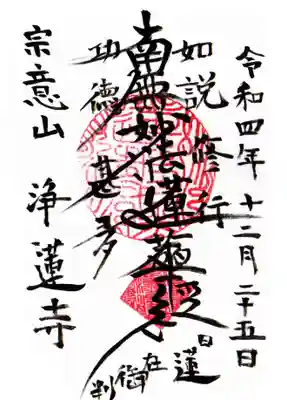 令和四年十二月二十五日
如説修行
南無妙法蓮華経
日蓮
在御判
功徳甚多
宗意山 浄蓮寺